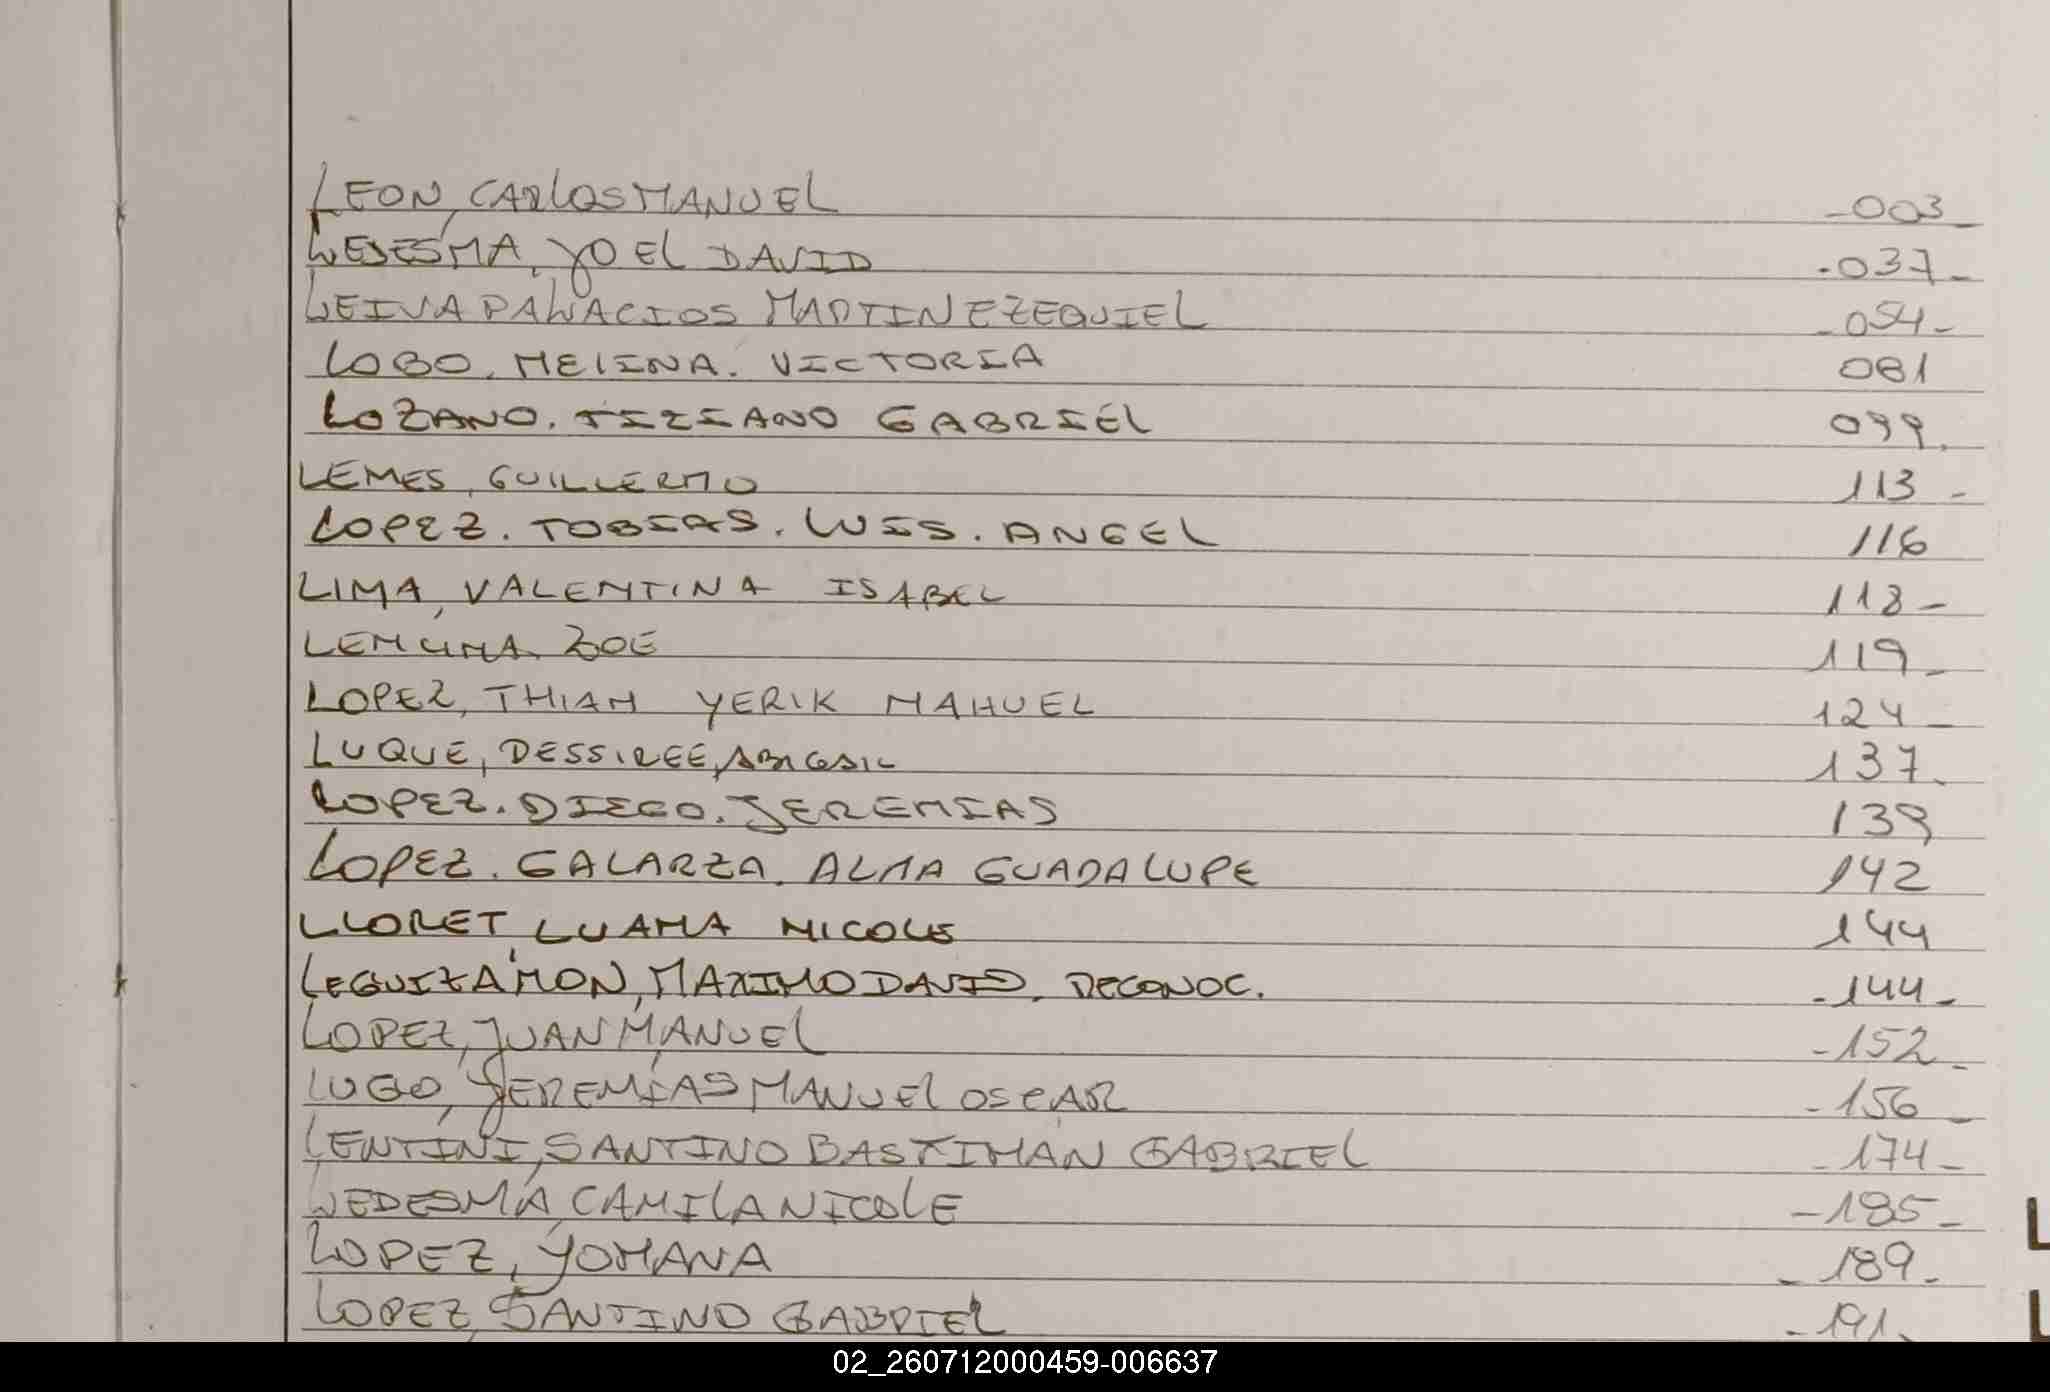 LEON, CARLOS MANUEL -003-
LEDESMA, YOEL DAVID -037-
LEIVA PALACIOS MARTIN EZEQUIEL -054-
LOBO. MELINA. VICTORIA 081
LOZANO. TIZIANO GABRIEL 099.
LEMES, GUILLERMO 113 -
LOPEZ. TOBIAS. LUIS. ANGEL 116
LIMA, VALENTINA ISABEL 118 -
ZOE 119 -
LOPEZ, THIAN YERIK NAHUEL 124 -
LUQUE, DESSIREE, ABIGAIL 137.
LOPEZ. DIEGO. JEREMIAS 139
LOPEZ. GALARZA. ALMA GUADALUPE 142
LLORET, LUANA NICOLE 144
LEGUIZAMON, MAXIMO DAVID. RECONOC. -144-
LOPEZ, JUAN MANUEL -152-
LUGO, JEREMIAS MANUEL OSCAR -156-
LENTINI, SANTINO BASTIMAN GABRIEL -174-
LEDESMA, CAMILA NICOLE -185-
LOPEZ, YOHANA -189-
LOPEZ, SANTINO GABRIEL -191-
L
L
02_260712000459-006637